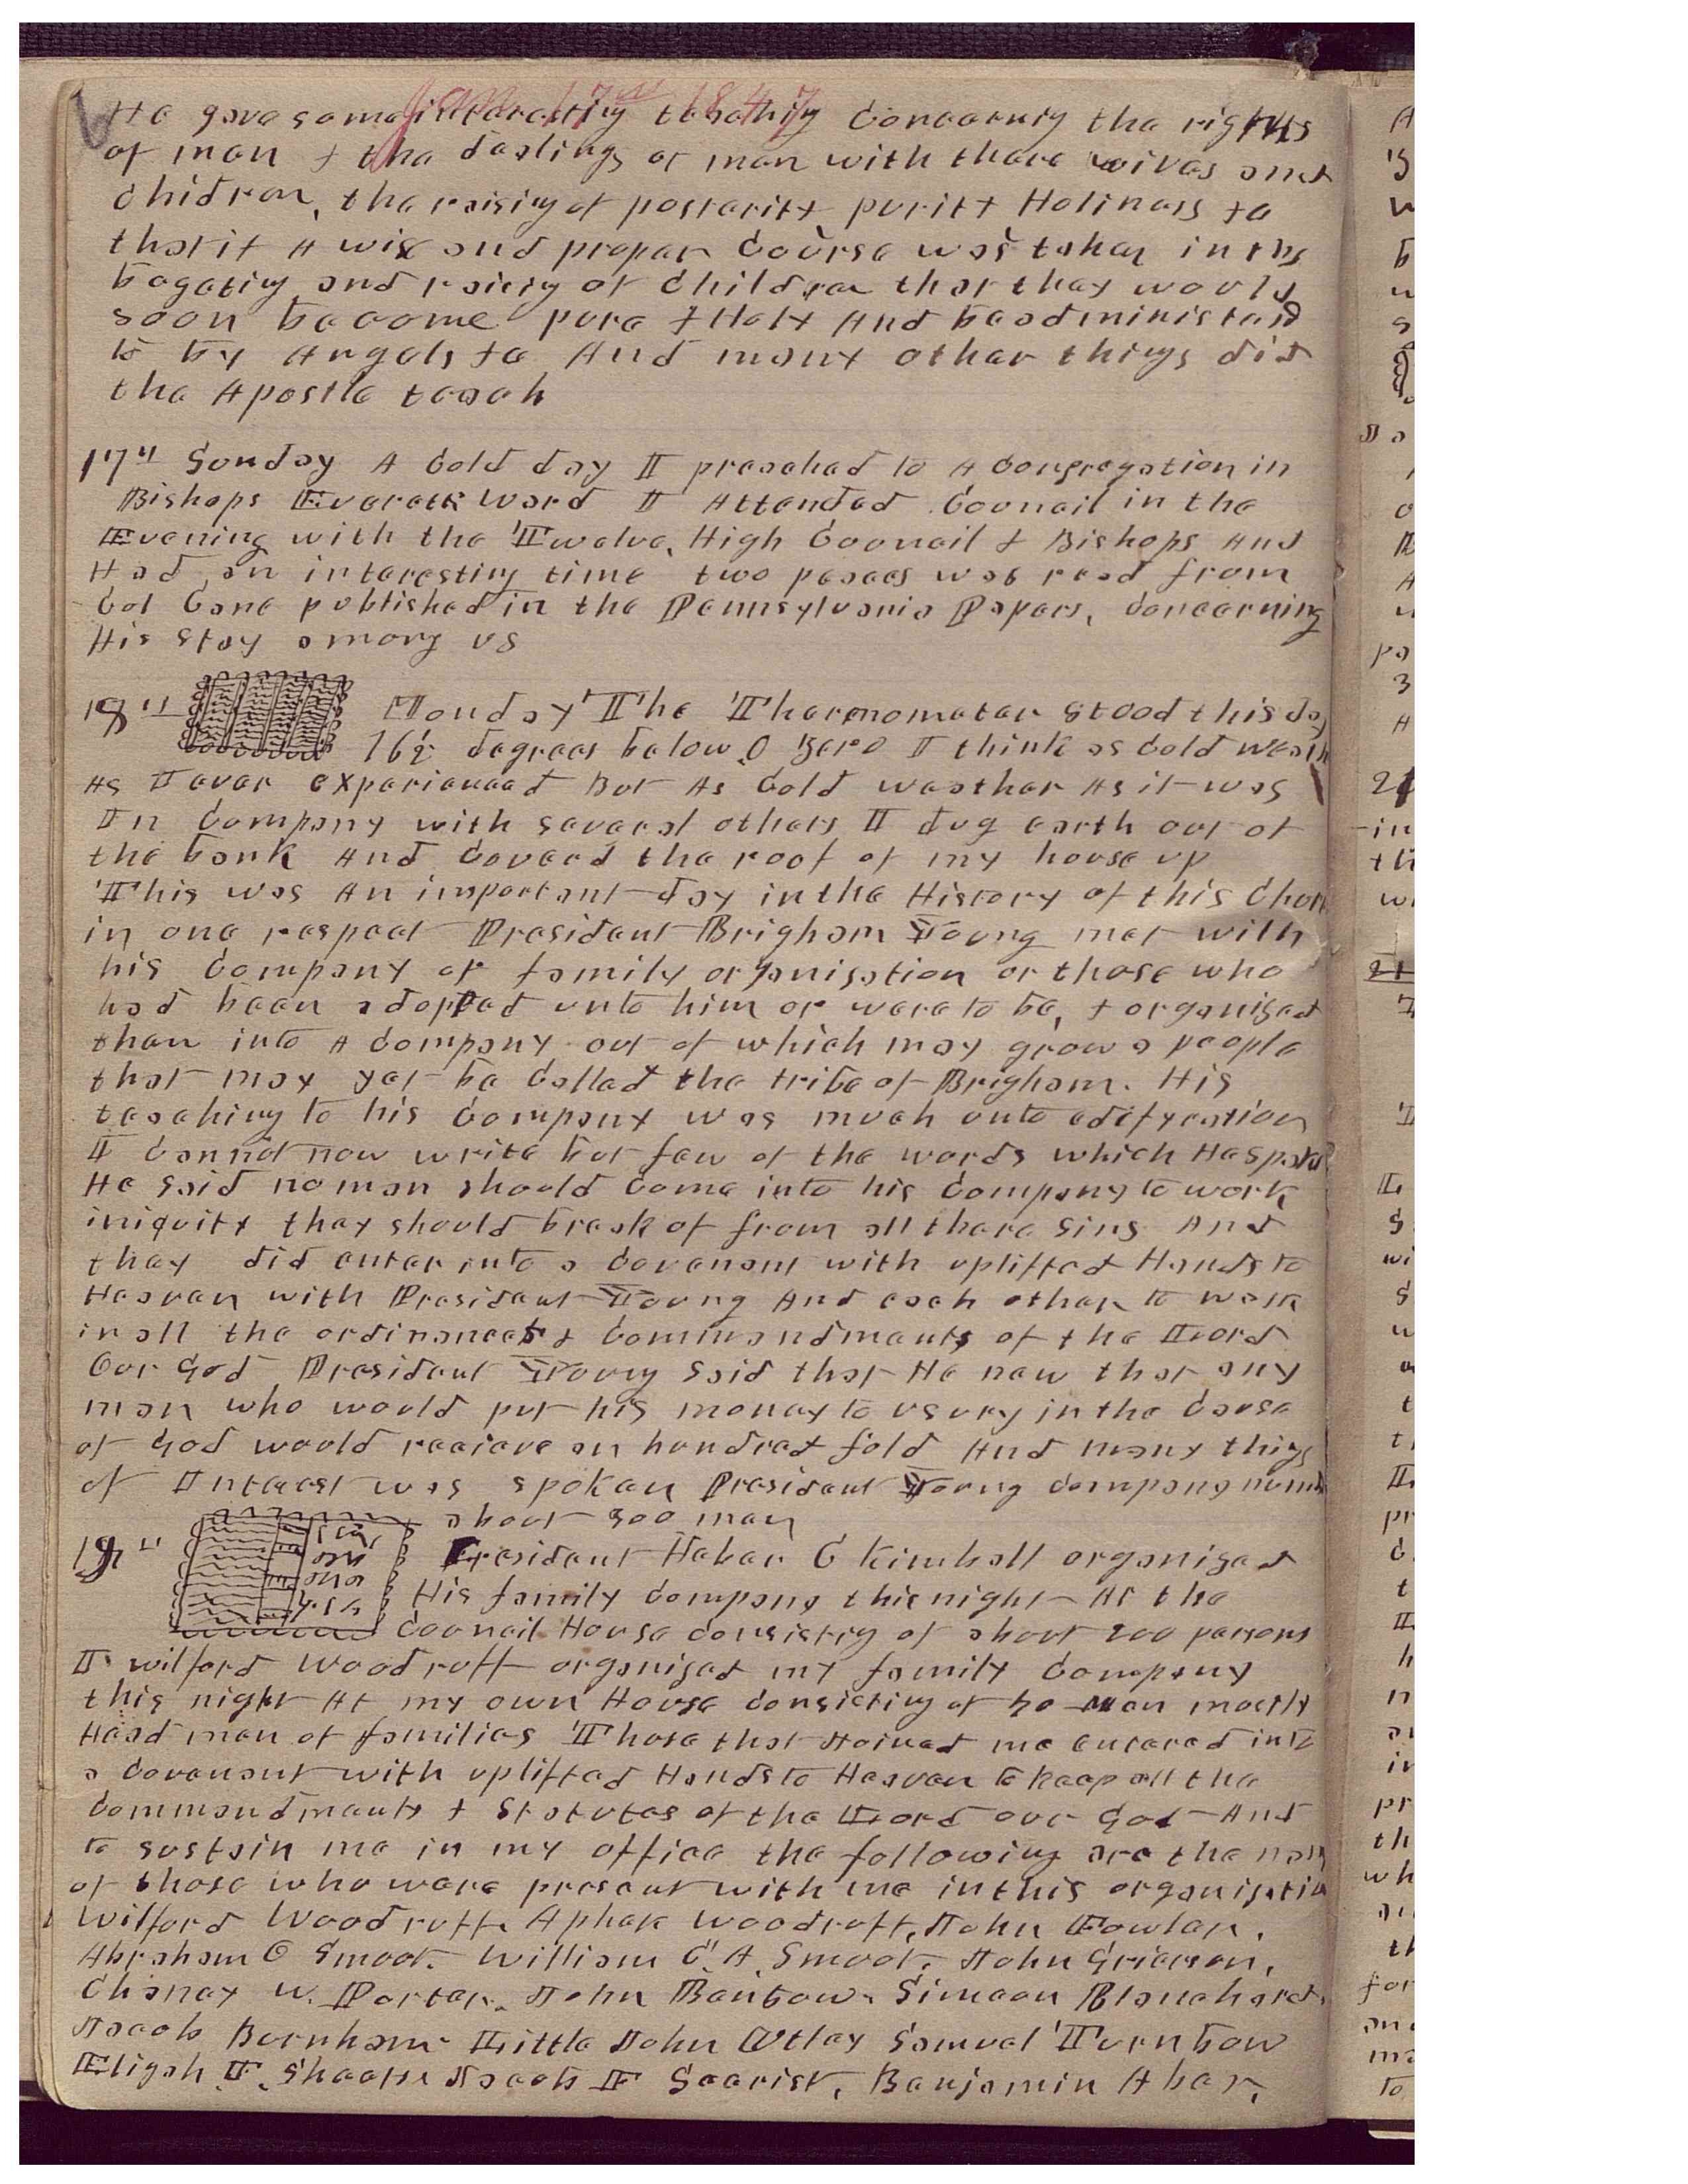 Jan 17th 1847
He gave some interesting teaching concerning the rights
of men & the dealings of men with there wives and
chidren, the raising of posterity purity Holiness &c
that if A wise and proper course was taken in the
begeting and raising of children that they would
soon become pure & Holy And be administered
to by Angels &c And many other things did
the Apostle teach
17th Sunday A cold day I preached to A congregation in
Bishops Everett Ward I Attended Council in the
Evening with the Twelve, High Council & Bishops And
Had an interesting time two peaces was read from
Col Cane published in the Pennsylvania Papers, concerning
His stay among us
18th Monday The Thermometer stood this day
16½ degrees below 0 zero I think as cold weath
As I ever experienced But As Cold weather As it was
In Company with several others I dug earth out of
the bank And covered the roof of my house up
This was An important day in the History of this Chur
in one respect President Brigham Young met with
his company or family organisation or those who
had been adopted unto him or were to be, & organised
them into A company out of which may grow a people
that may yet be called the tribe of Brigham. His
teaching to his company was much unto edifycation
I cannot now write but few of the words which He spoke
He said no man should come into his company to work
iniquity they should break of from all there sins And
they did enter into a covenant with uplifted Hands to
Heaven with President Young And each other to walk
in all the ordinances & commandments of the Lord
Our God President Young said that He new that any
man who would put his money to usury in the cause
of God would receieve an hundred fold And many things
of Interest was spoken President Young company numb
about 300 men
19th President Heber C Kimball organised
His family company this night At the
Council House consisting of about 200 persons
I Wilford Woodruff organised my family company
this night At my own House consisting of 40 men mostly
Head men of families Those that Joined me entered into
a covenant with uplifted Hands to Heaven to keep all the
commandments & statutes of the Lord our God And
to sustain me in my office the following are the nam
of those who were present with me in this organisatio
Wilford Woodruff. Aphek Woodruff, John Fowler,
Abraham O Smoot. William C. A. Smoot. John Grierson,
Chaney W. Porter. John Benbow. Simeon Blanchard,
Jacob Burnham Little John Utley Samuel Turnbow
Elijah F. Sheets Jacob F Secrist, Benjamin Aber,